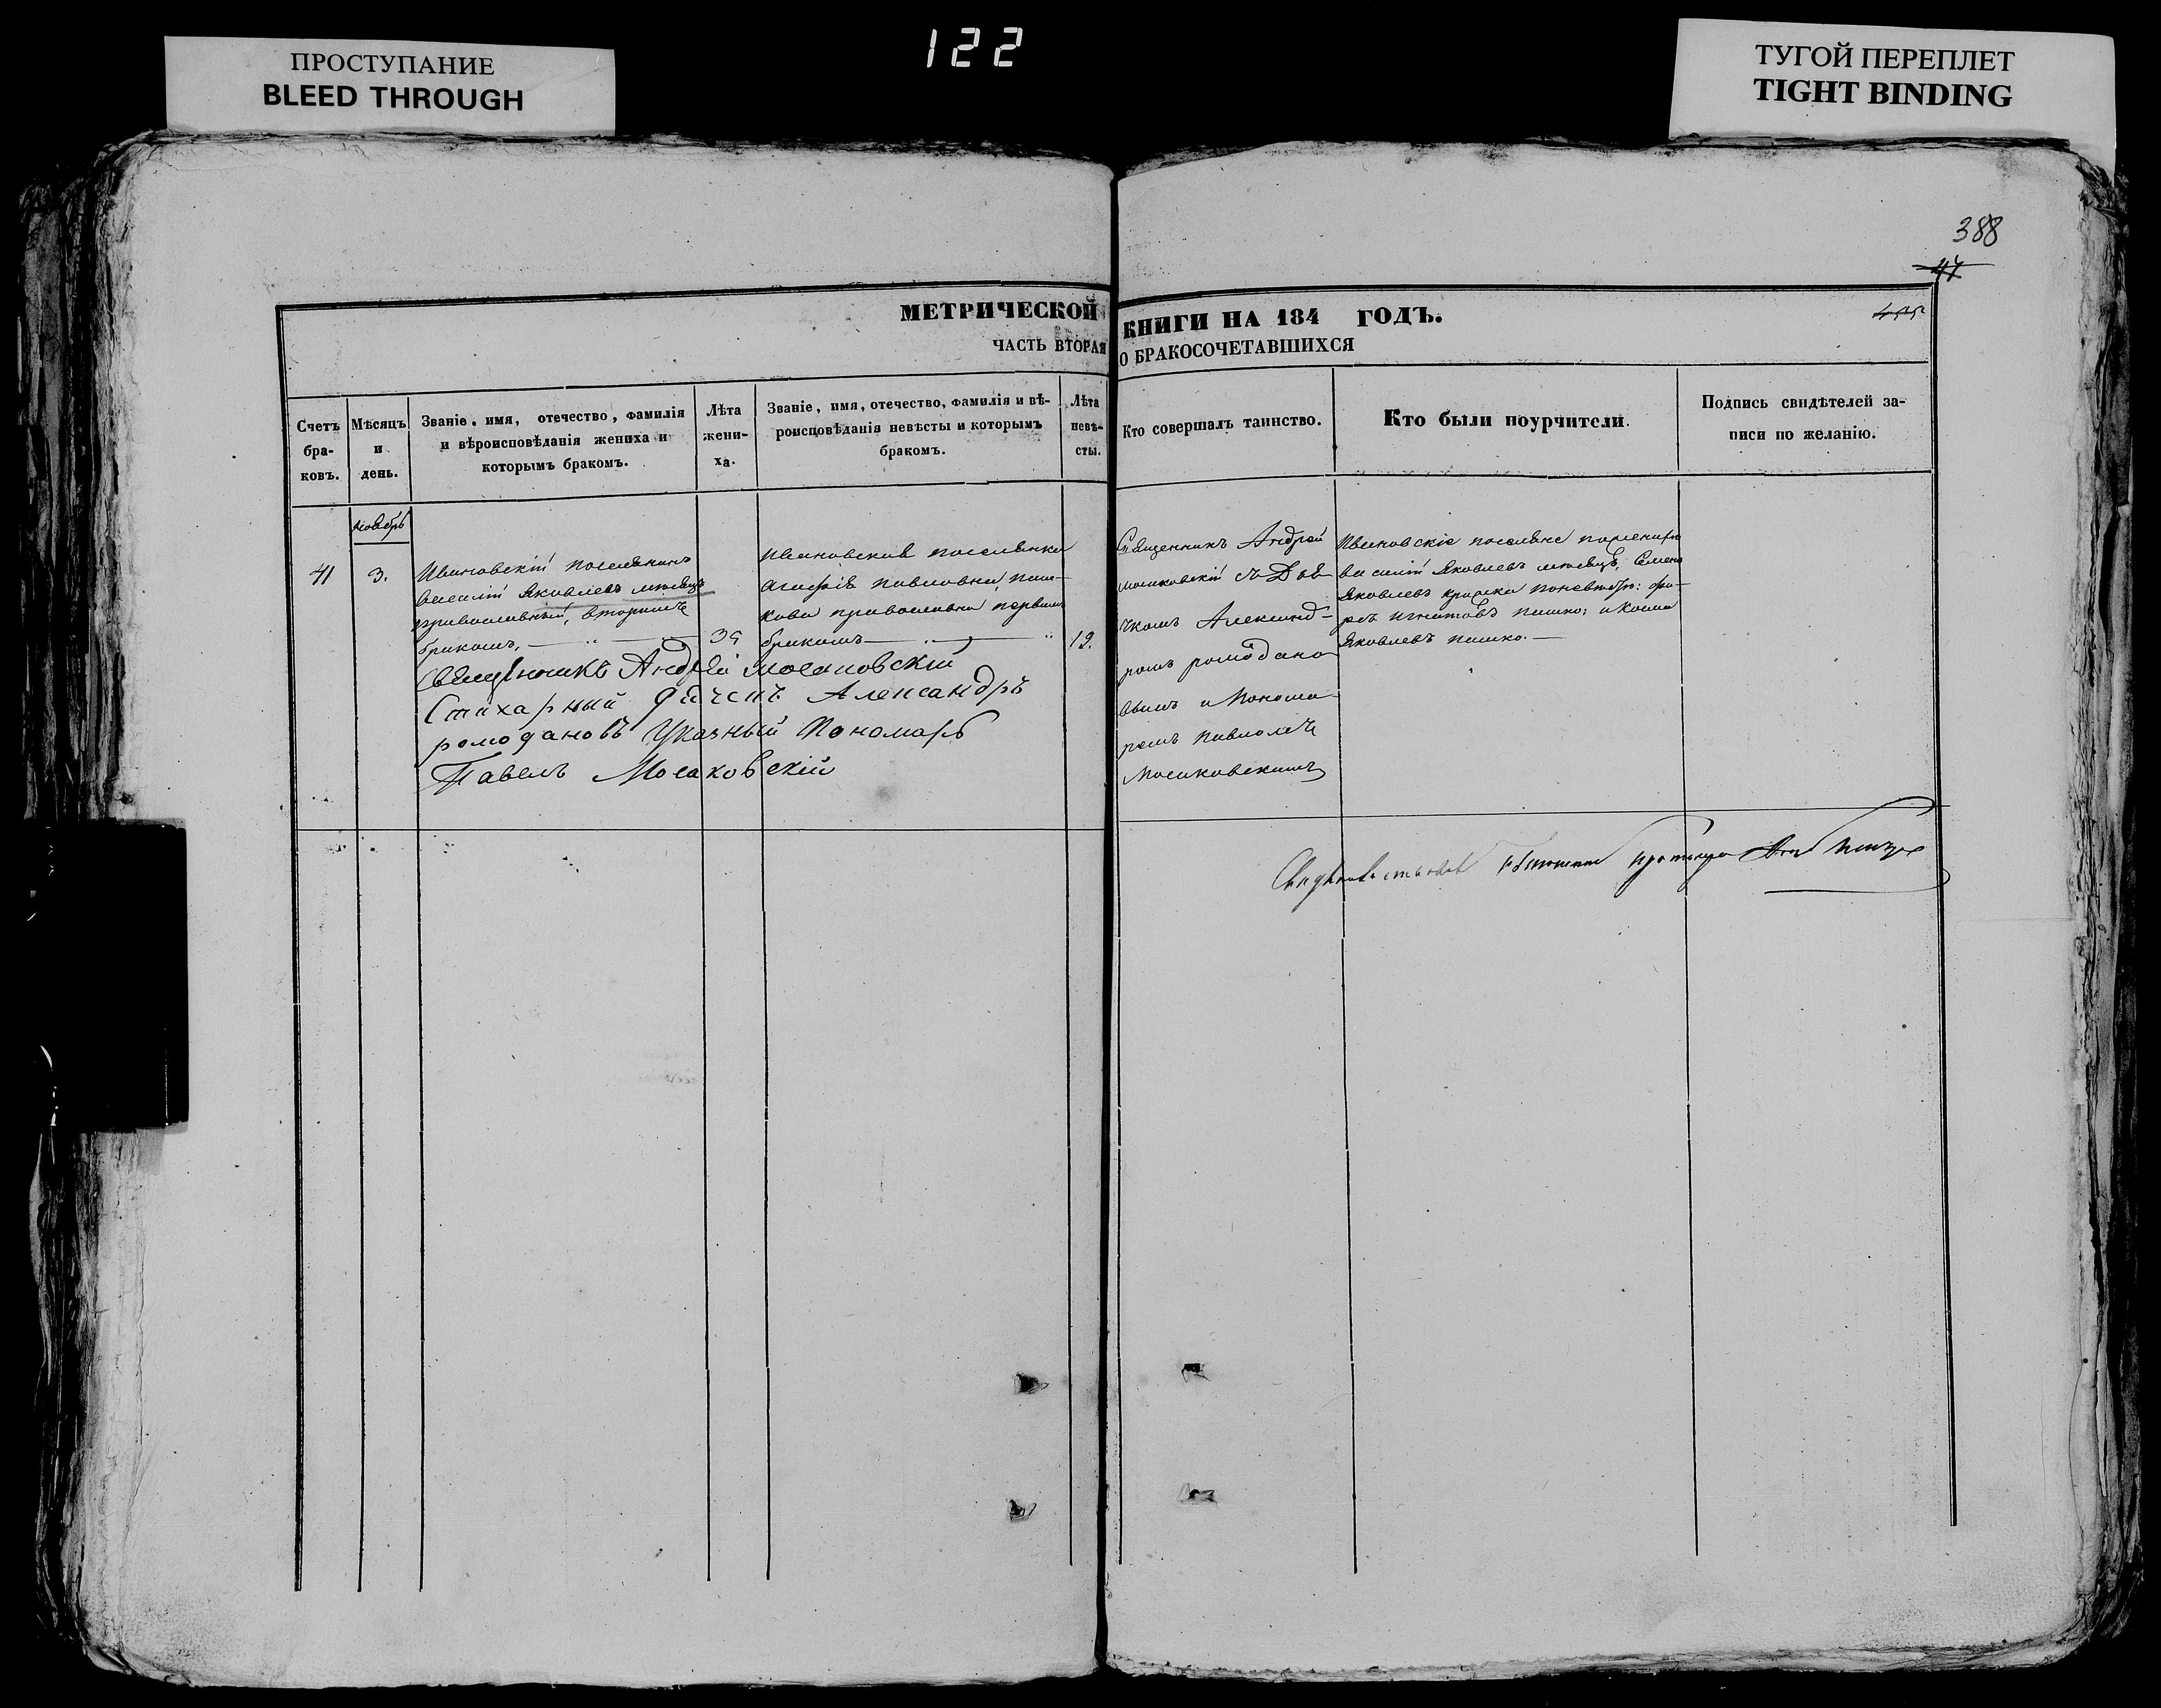 ПРОСТУПАНИЕ
BLEED THROUGH
122
ТУГОЙ ПЕРЕПЛЕТ
TIGHT BINDING
388
МЕТРИЧЕСКОЙ КНИГИ НА 184 ГОДЪ.
ЧАСТЬ ВТОРАЯ О БРАКОСОЧЕТАВШИХСЯ
Счетъ
бра-
ковъ.
Мѣсяцъ
и
день.
Званіе, имя, отечество, фамилія
и вѣроисповѣданія жениха и
которымъ бракомъ.
Лѣта
жени-
ха.
Званіе, имя, отечество, фамилія и вѣ-
роисповѣданія невѣсты и которымъ
бракомъ.
Лѣта
невѣ-
сты.
Кто совершалъ таинство.
Кто были поурчители.
Подпись свидѣтелей за-
писи по желанію.
41
ноябрь
3.
Ивановскій поселянинъ
Василій Яковлевъ
православный, вторымъ
бракомъ,
Ивановская поселянка
Агафія Павловна Паш-
кова православна первымъ
бракомъ
19.
Священникъ Андрей
Мосаковскій съ Дья-
чкомъ Александ-
ромъ Ромодано
вымъ и Понома-
ремъ Павломъ
Мосаковскимъ
Ивановскіе поселяне по женихѣ
Василій Яковлевъ Семенъ
Яковлевъ по невѣстѣ:
Игнатовъ Пашко; и Косма
Яковлевъ Пашко.
Священникъ Андрей Мосаковскій
Стихарный Дячекъ Александръ
Ромодановъ Указный Пономарь
Павелъ Мосаковскій